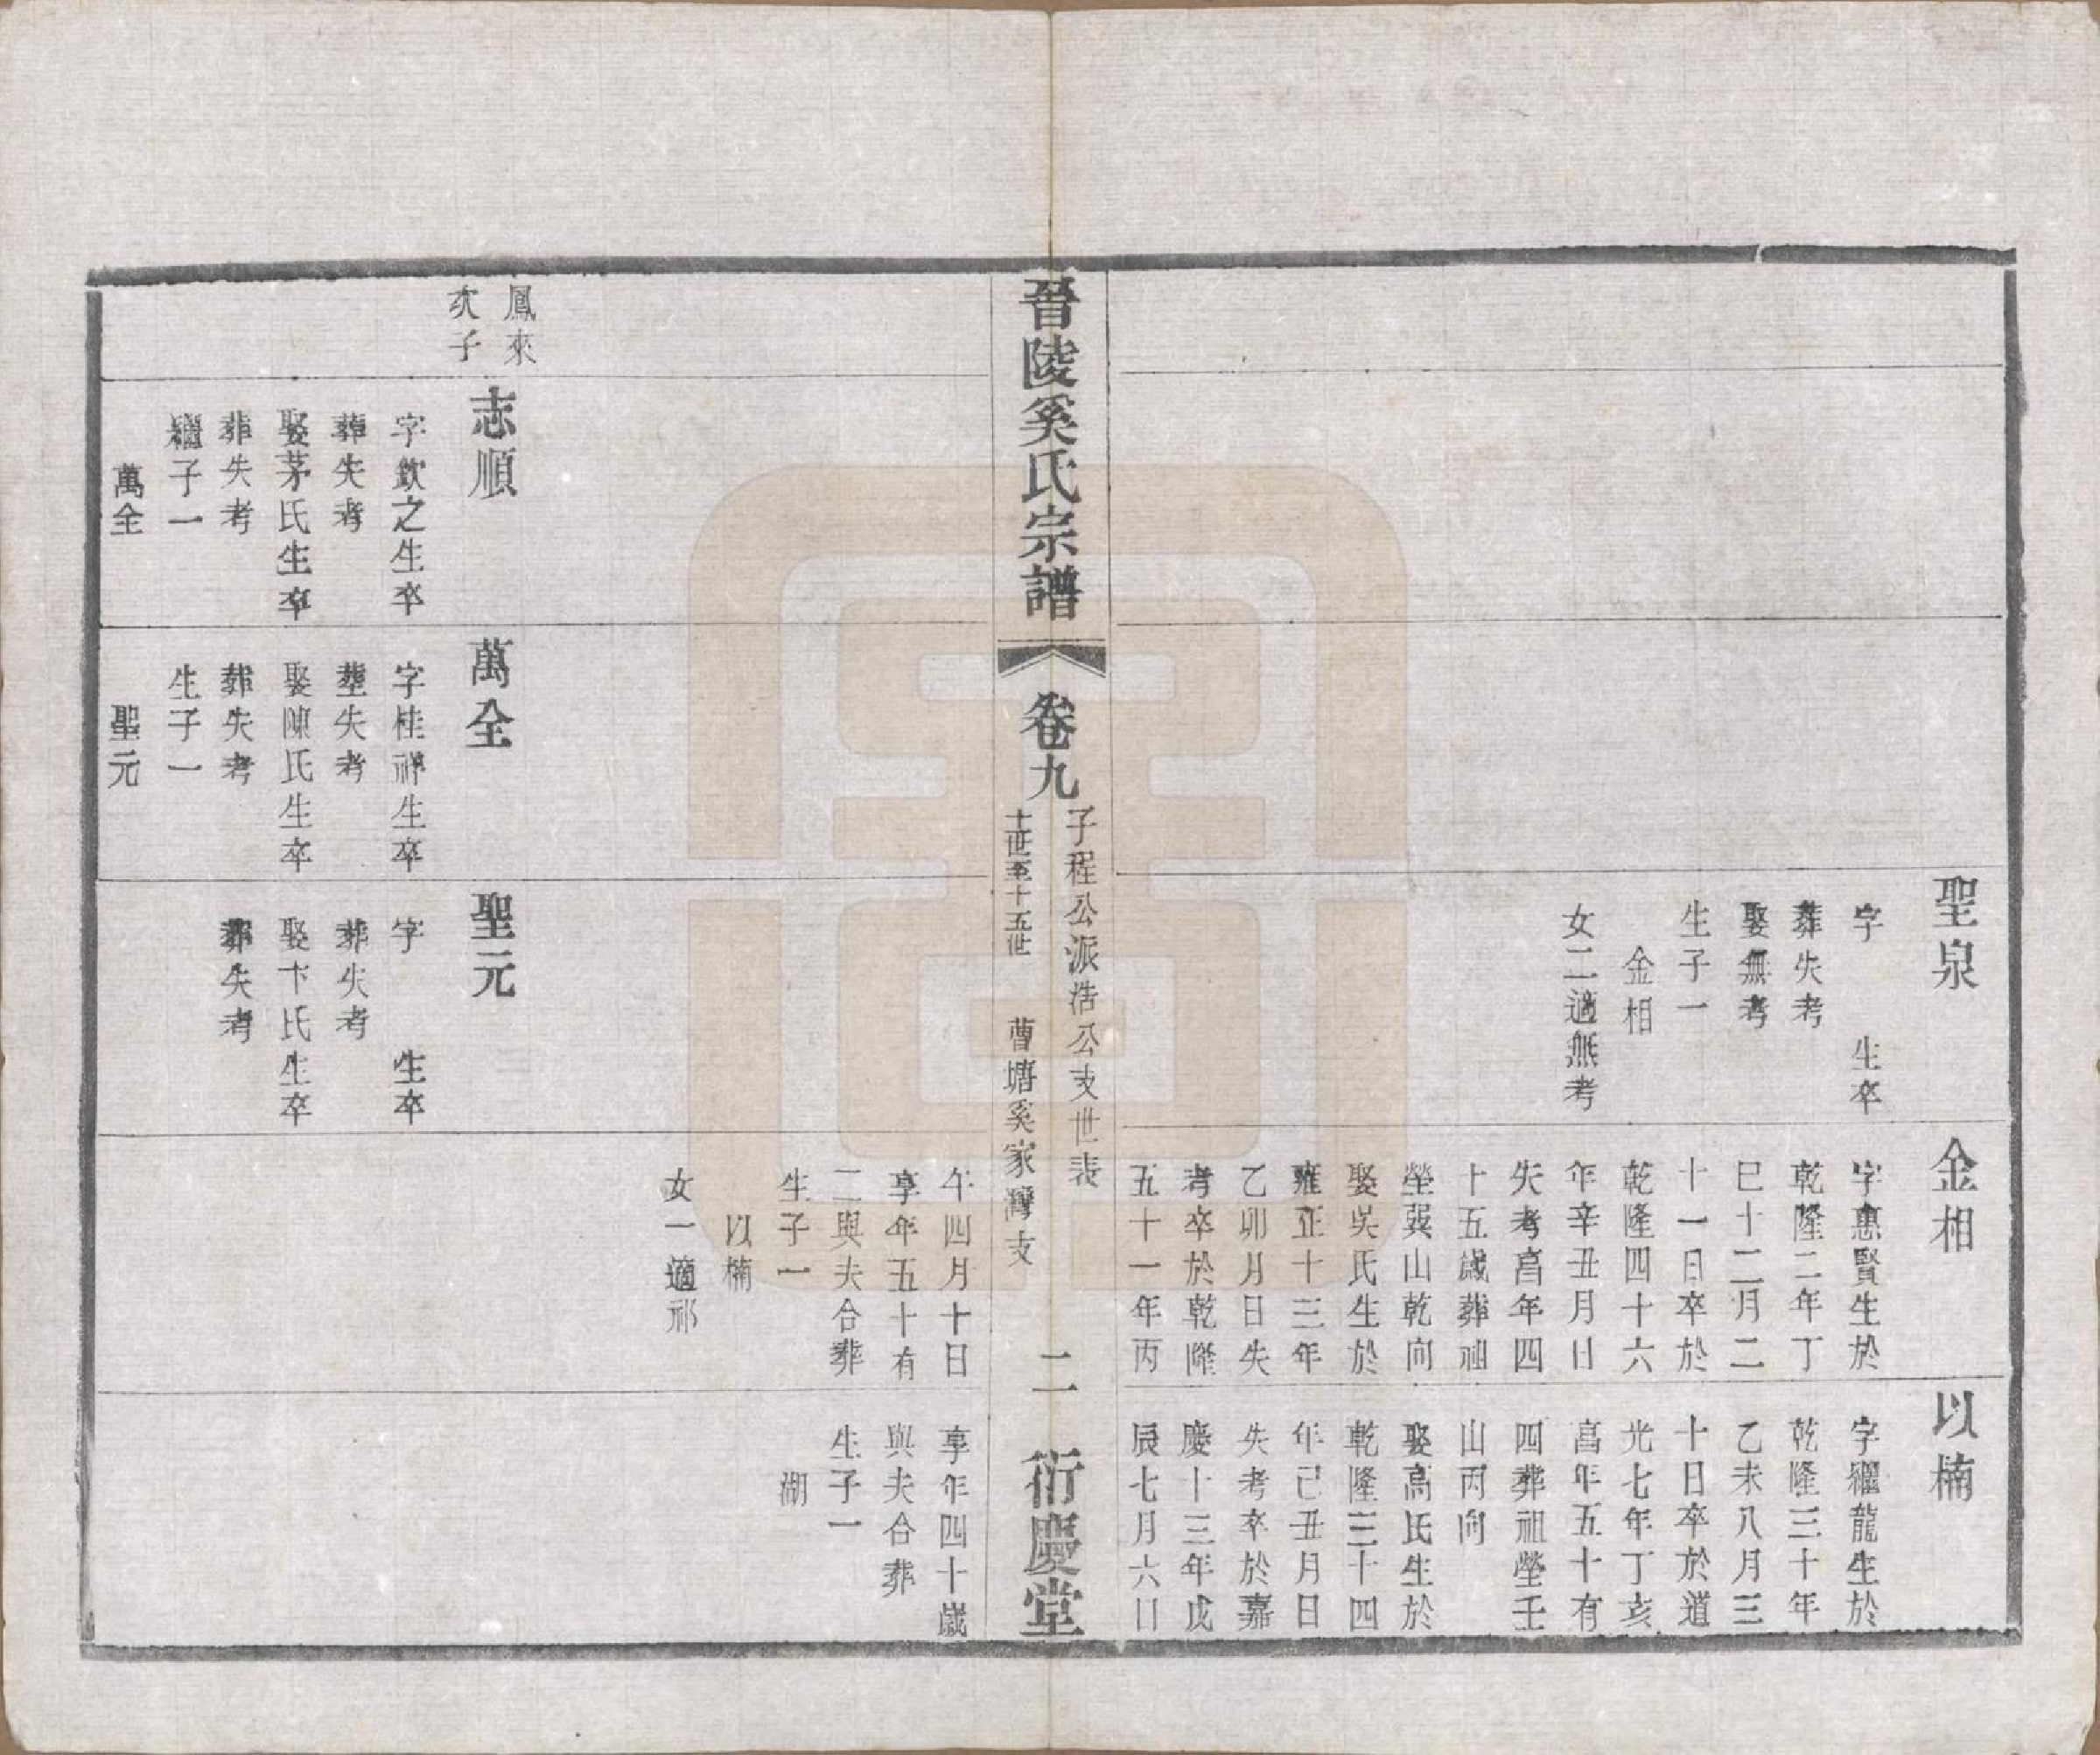 聖泉
字　　生卒
葬失考
娶無考
生子一
金相
女二適無考
金相
字惠賢生於
乾隆二年丁
巳十二月二
十一日卒於
乾隆四十六
年辛丑月日
失考享年四
十五歲葬祖
塋巽山乾向
娶吳氏生於
雍正十三年
乙卯月日失
考卒於乾隆
五十一年丙
以楠
字繼龍生於
乾隆三十年
乙未八月三
十日卒於道
光七年丁亥
享年五十有
四葬祖塋壬
山丙向
娶高氏生於
乾隆三十四
年己丑月日
失考卒於嘉
慶十三年戊
辰七月六日
晉陵奚氏宗譜
卷九
子程公派浩公支世表
十世至十五世　曹塘奚家灣支
二
衍慶堂
午四月十日
享年五十有
二與夫合葬
生子一
以楠
女一適祁
享年四十歲
與夫合葬
生子一
湖
鳳來
次子
志順
字欽之生卒
葬失考
娶茅氏生卒
葬失考
繼子一
萬全
萬全
字桂祥生卒
葬失考
娶陳氏生卒
葬失考
生子一
聖元
聖元
字　　生卒
葬失考
娶卞氏生卒
葬失考